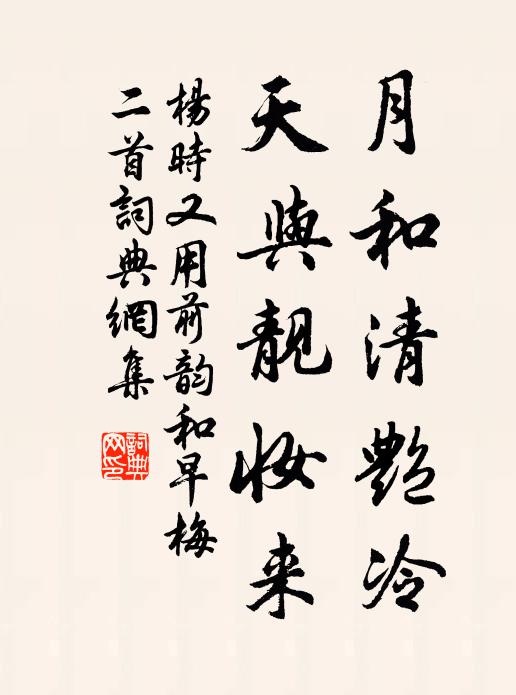 月和清艷冷
天與靚妝来
楊時又用前韵和早梅
二首詞典網集
詞典网印